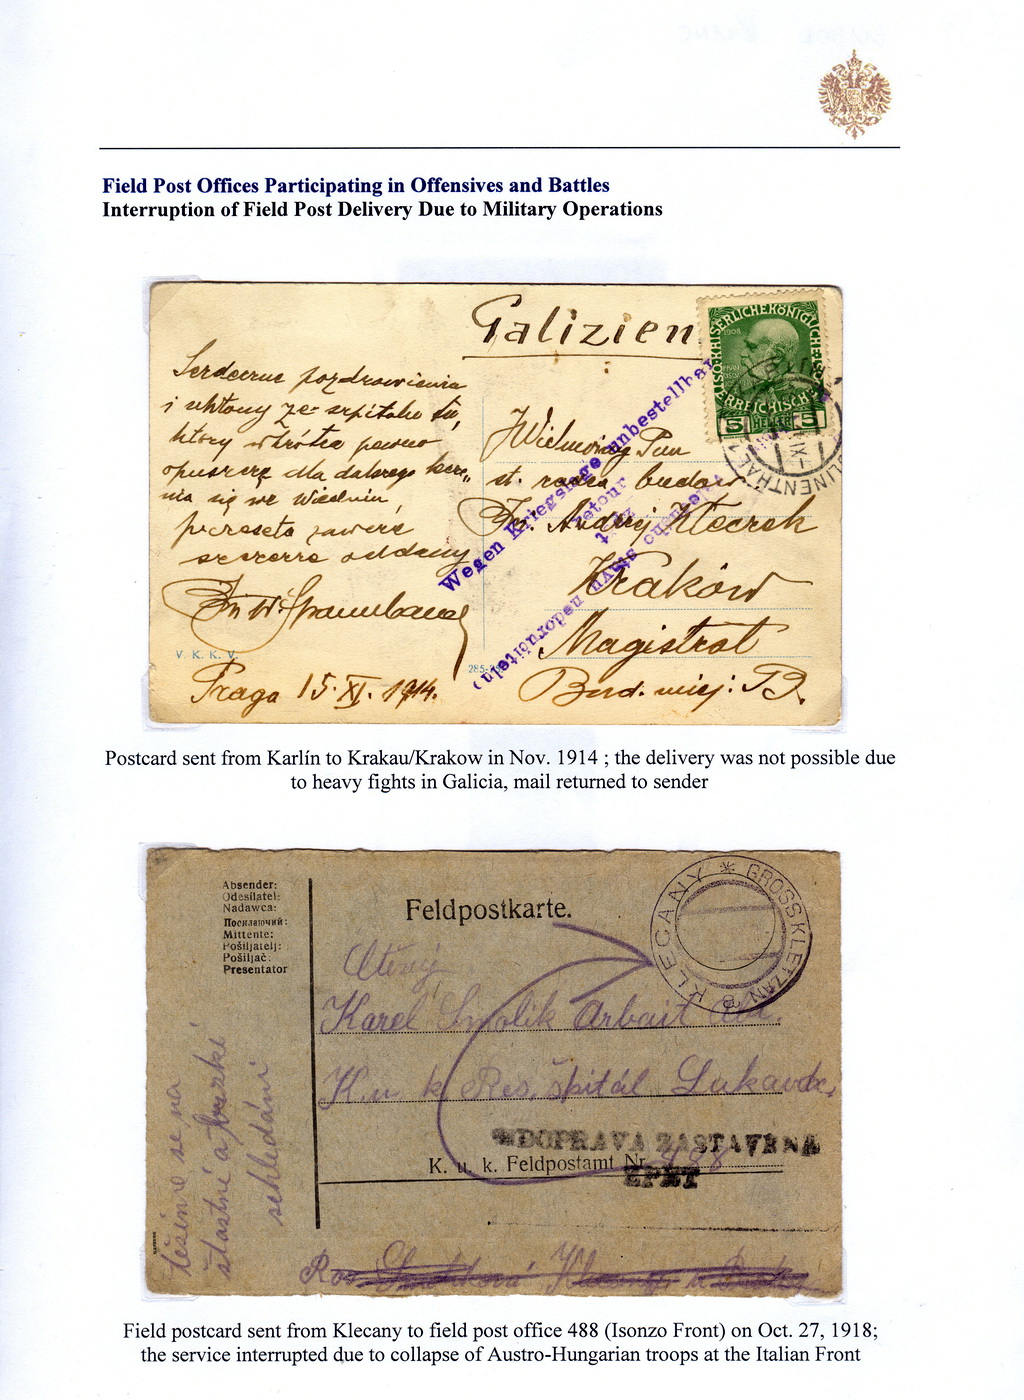 Field Post Offices Participating in Offensives and Battles
Interruption of Field Post Delivery Due to Military Operations
Galizien
Serdeczne pozdrowienia
i ukłony ze szpitala tu,
który wkrótce pewno
opuszczę dla dalszego
się we Wiedniu
szczerze oddany
V. K. K. V.
Praga 15. XI. 1914.
1908
5 HELLER 5
Wegen Kriegslage unbestellbar
retour
Wielmożny Pan
st. radca budow.
Andrzej Kleczek
Kraków
Magistrat
Bud. miej: B.
Postcard sent from Karlín to Krakau/Krakow in Nov. 1914 ; the delivery was not possible due
to heavy fights in Galicia, mail returned to sender
Absender:
Odesílatel:
Nadawca:
Посилаючий:
Mittente:
Pošiljatelj:
Pošiljač:
Presentator
Feldpostkarte.
GROSS KLETZAN
KLECANY
Ctěný
Karel Smolik Arbait Abt.
K. u k Res. špitál
DOPRAVA ZASTAVENA
ZPĚT
K. u. k. Feldpostamt Nr. 488
těšíme se na
šťastné a brzké
shledání
Field postcard sent from Klecany to field post office 488 (Isonzo Front) on Oct. 27, 1918;
the service interrupted due to collapse of Austro-Hungarian troops at the Italian Front